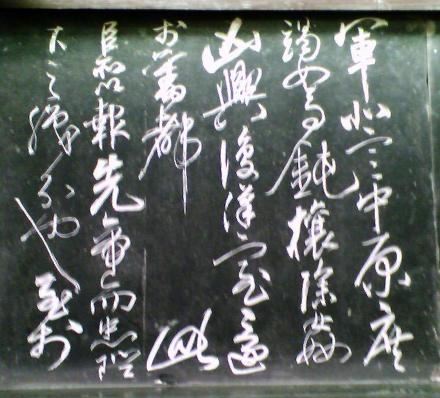 軍北定中原庶
竭駑鈍攘除姦
凶興復漢室還
於舊都此
臣所以報先帝而忠陛
下之職分也至於